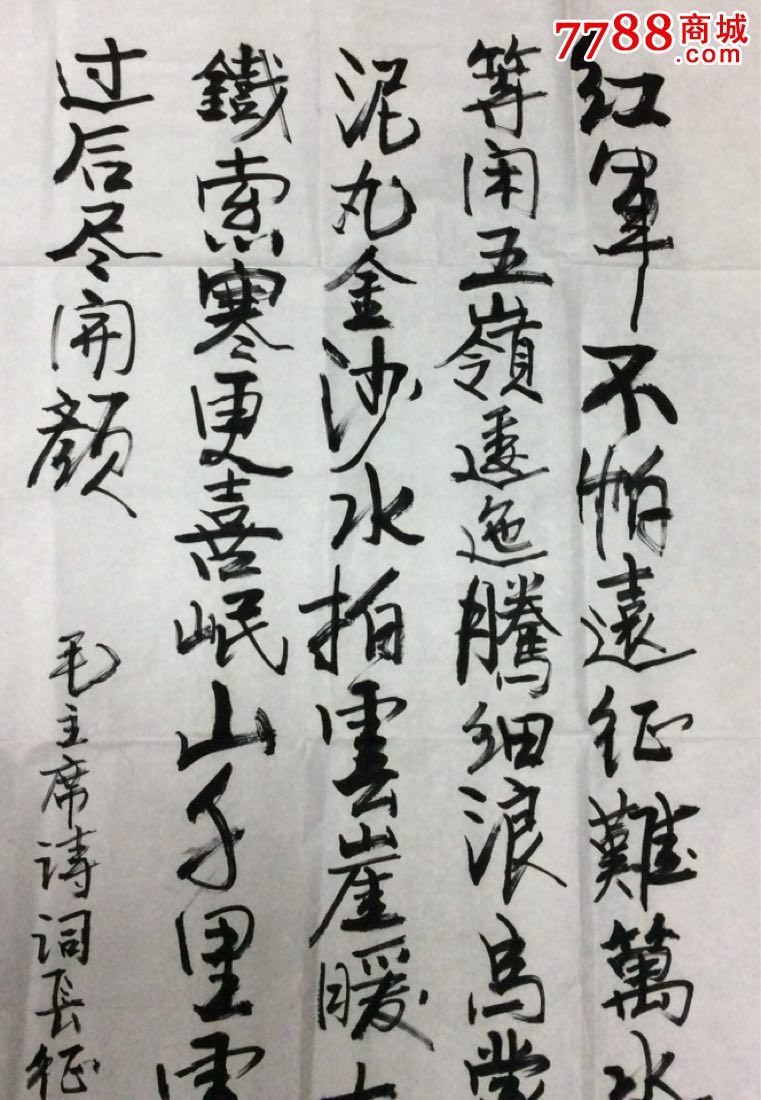 7788商城
.com
红軍不怕遠征難萬水
等闲五嶺逶迤騰细浪烏蒙
泥丸金沙水拍雲崖暖大
鐵索寒更喜岷山千里雪
过后尽開颜
毛主席诗词長征